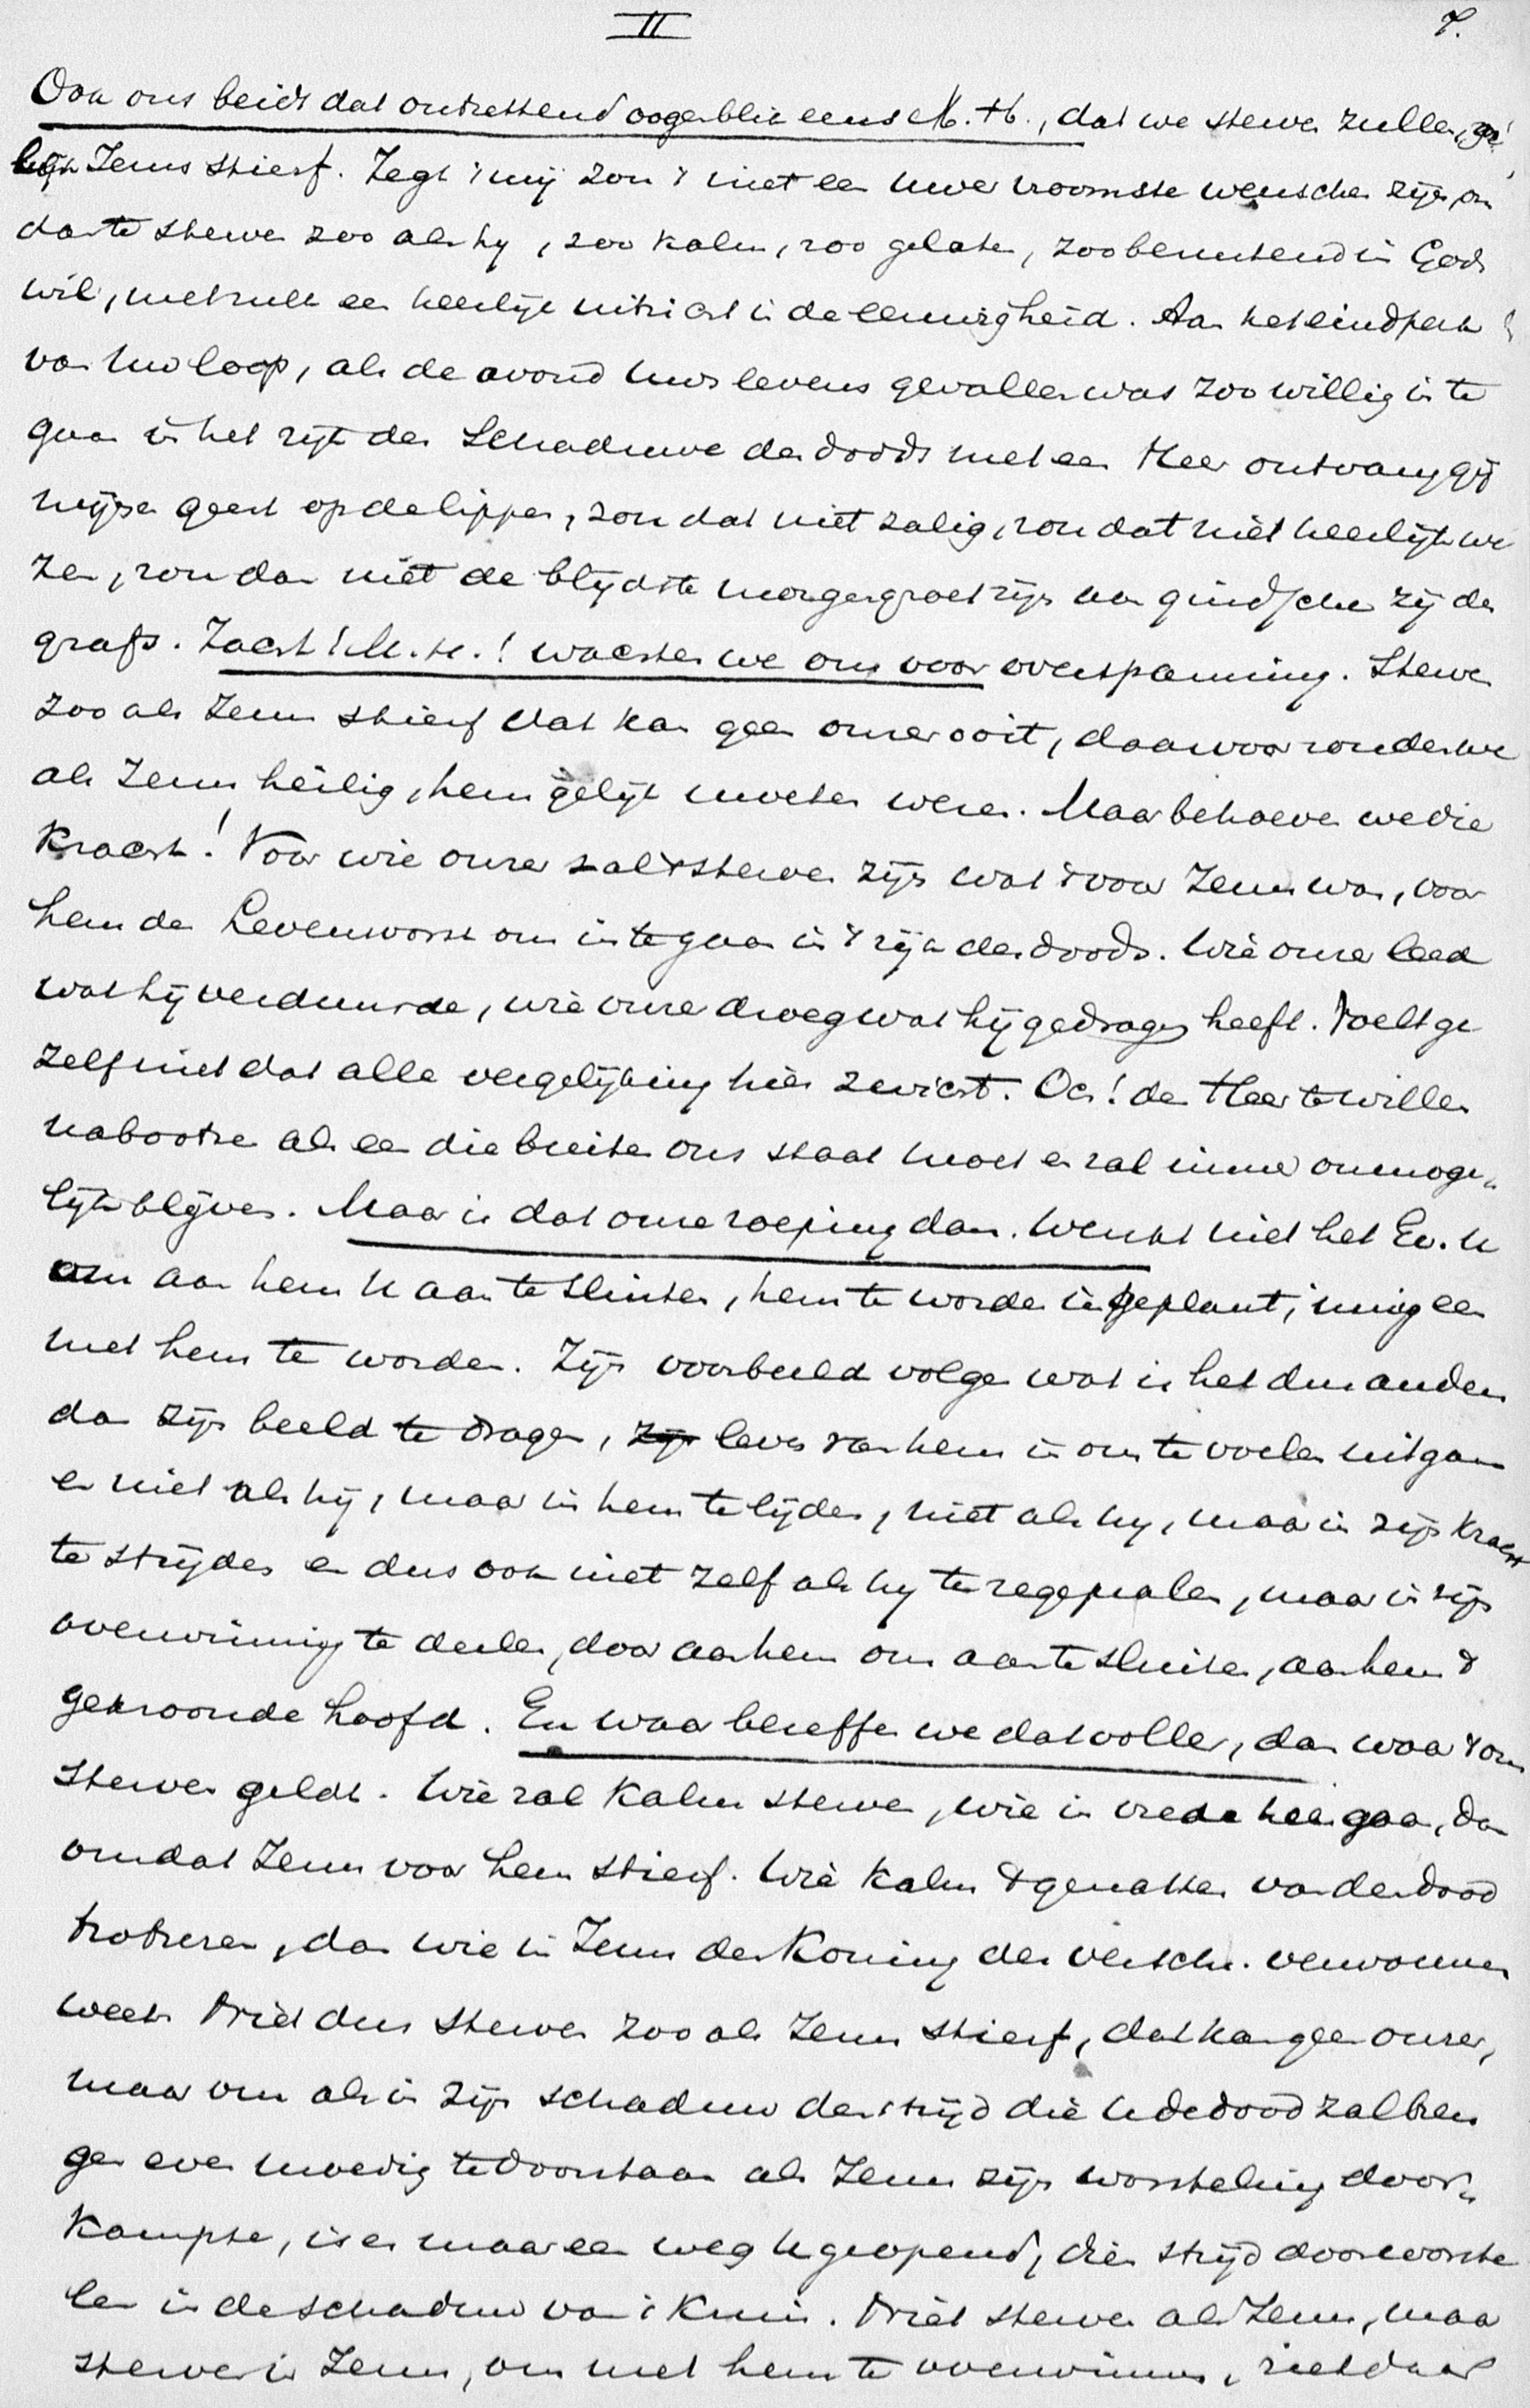 II 7.
Ook ons beidt dat ontzettend oogenblik eens M. H., dat we sterven zullen, ge-
lijk Jezus stierf. Zegt 't mij zou 't niet een uwer vroomste wenschen zijn, om
dan te sterven zoo als hij, zoo kalm, zoo gelaten, zoo berustend in Gods
wil, met zulk een heerlijk uitzicht in de eeuwigheid. Aan het eindperk
van uw loop, als de avond uws levens gevallen was zoo willig in te
gaan in het rijk der Schaduwe des doods met een Heer ontvang gij
mijnen geest op de lippen, zou dat niet zalig, zou dat niet heerlijk we
zen, zou dan niet de blijdste morgengroet zijn van gindsche zij des
grafs. Zacht! M. H.! wachten we ons voor overspanning. Sterven
zoo als Jezus stierf dat kan geen onzer ooit, daarvoor zouden we
als Jezus heilig, hem gelijk moeten wezen. Maar behoeven we die
Kracht! Voor wie onzer zal 't sterven zijn wat 't voor Jezus was, voor
hem den Levensvorst om in te gaan in 't rijk des doods. Wie onzer leed
wat hij verduurde, wie onzer droeg wat hij gedragen heeft. Voelt ge
zelf niet dat alle vergelijking hier zwicht. Och! den Heer te willen
nabootsen als een die buiten ons staat moet en zal immer onmoge-
lijk blijven. Maar is dat onze roeping dan. Wenkt niet het Ev. u
om aan hem u aan te sluiten, hem te worden ingeplant, innig een
met hem te worden. Zijn voorbeeld volgen wat is het dus anders
dan zijn beeld te dragen, leven van hem in ons te voelen uitgaan
en niet als hij, maar in hem te lijden, niet als hij, maar in zijn kracht
te strijden en dus ook niet zelf als hij te zegepralen, maar in zijn
overwinning te deelen, door aan hem ons aan te sluiten, aan hem 't
gekroonde hoofd. En waar beseffen we dat voller, dan waar 't ons
sterven geldt. Wie zal kalm sterven, wie in vrede heengaan, dan
omdat Jezus voor hem stierf. Wie kalm 't genaken van den dood
trotseren, dan wie in Jezus den Koning der verschr. verwonnen
weet. Niet dus sterven zoo als Jezus stierf, dat kan geen onzer,
maar om als in zijn schaduw den strijd die u de dood zal bren
gen even moedig te doorstaan als Jezus zijn worsteling door-
kampte, is er maar een weg u geopend, dien strijd doorworste
len in de schaduw van 't Kruis. Niet sterven als Jezus, maar
sterven in Jezus, om met hem te overwinnen, ziet daar